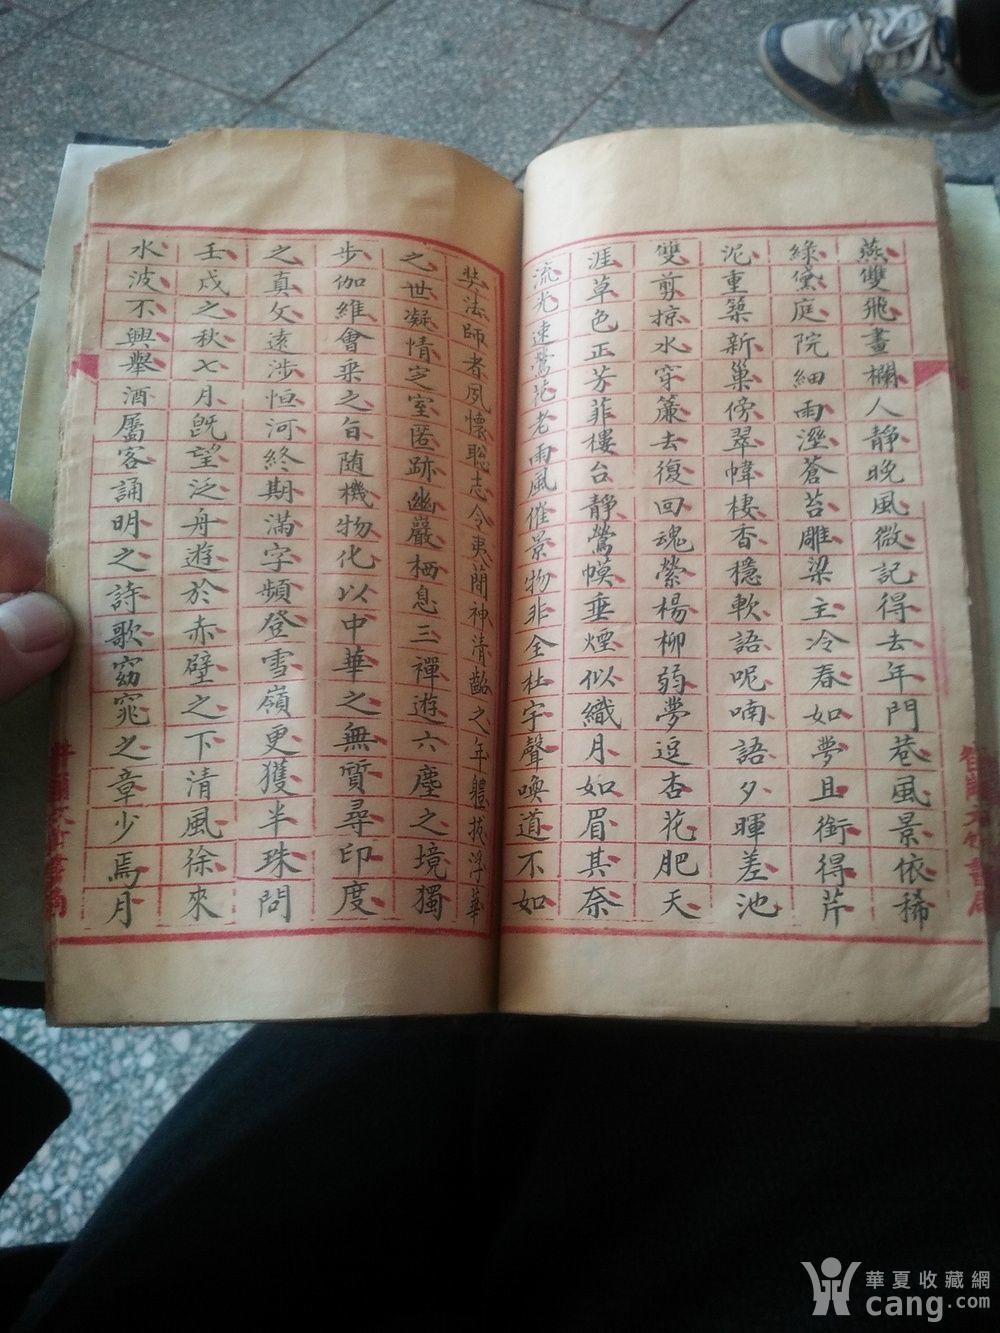 燕雙飛畫欄人靜晚風微記得去年門巷風景依稀
綠黛庭院細雨溼蒼苔雕梁主冷春如夢且銜得芹
泥重築新巢傍翠幃棲香穩軟語呢喃語夕暉差池
雙剪掠水穿簾去復回魂縈楊柳弱夢逗杏花肥天
涯草色正芳菲樓台靜鶯幙垂煙似織月如眉其奈
流光速鶯花老雨風催景物非全杜宇聲喚道不如
奘法師者夙懷聡志令夷簡神清齠之年體拔浮華
之世凝情定室匿跡幽巖栖息三禪遊六塵之境獨
步伽維會乘之旨随機物化以中華之無質尋印度
之真文遠涉恒河終期滿字頻登雪嶺更獲半珠問
壬戌之秋七月既望泛舟遊於赤壁之下清風徐來
水波不興舉酒屬客誦明之詩歌窈窕之章少焉月
華夏收藏網
cang.com